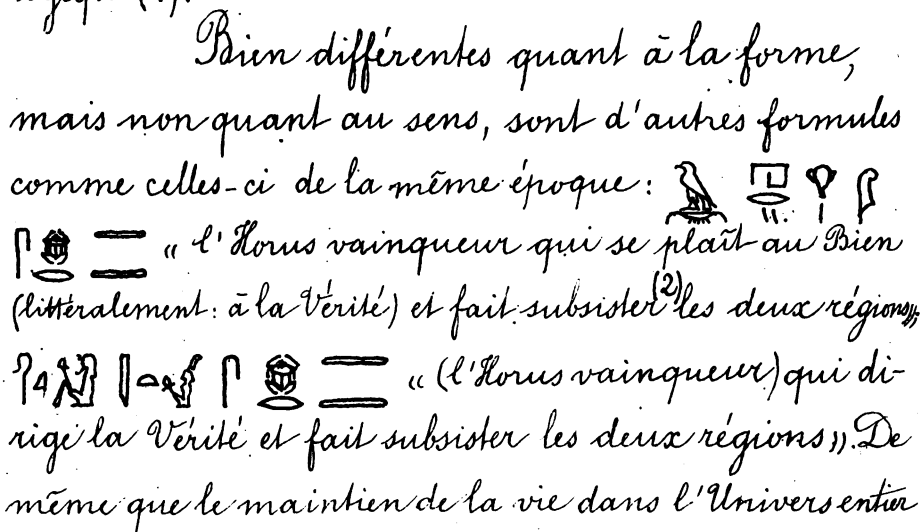 Bien différentes quant à la forme,
mais non quant au sens, sont d'autres formules
comme celles-ci de la même époque :
« l'Horus vainqueur qui se plaît au Bien
(littéralement : à la Vérité) et fait subsister (2) les deux régions »;
« (l'Horus vainqueur) qui di-
rige la Vérité et fait subsister les deux régions ». De
même que le maintien de la vie dans l'Univers entier